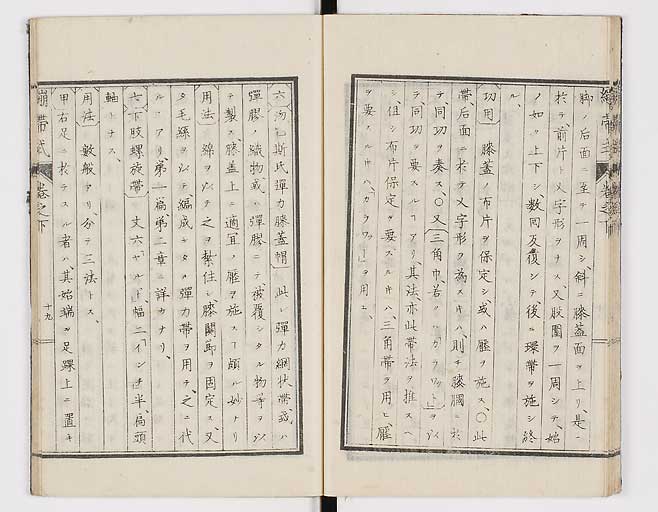 脚ノ后面ニ至テ一周シ斜ニ膝蓋面ヲ上リ是ニ
於テ前片ト乂字形ヲナス又股圍ヲ一周シテ始
ノ如ク上下シ数回反復シテ後ニ環帶ヲ施シ終
ル
功用 膝蓋ノ布片ヲ保定シ或ハ壓ヲ施ス〇此
帶后面ニ於テ乂字形ヲ為スキハ則チ膝膕ニ於
テ同功ヲ奏ス〇又三角巾若クハカラワットヲ以
テ同功ヲ要スルヿアリ其法亦此帶法ヲ推スヘ
シ但シ布片保定ヲ要スルキハ三角帶ヲ用ヒ壓
ヲ要スルキハカラワットヲ用ユ
繃帶式 卷之下
十九
六 斯氏彈力膝蓋帽 此レ彈力網狀帶或ハ
彈膠ノ織物或ハ彈膠ニテ被覆シタル物等ヲ以
テ製ス膝蓋上ニ適宜ノ壓ヲ施スヿ頗ル妙ナリ
用法 綿ヲ以テ之ヲ紮住シ膝關節ヲ固定ス又
タ毛絲ヲ以テ編成シタル彈力帶ヲ用テ之ニ代
ルヿアリ第一扁第二章ニ詳カナリ
七 下肢螺旋帶 丈六ヤールド幅二インチ半扁頭
軸トナス
用法 數般アリ分テ三法トス
甲右足ニ於テスル者ハ其始端ヲ足踝上ニ置キ